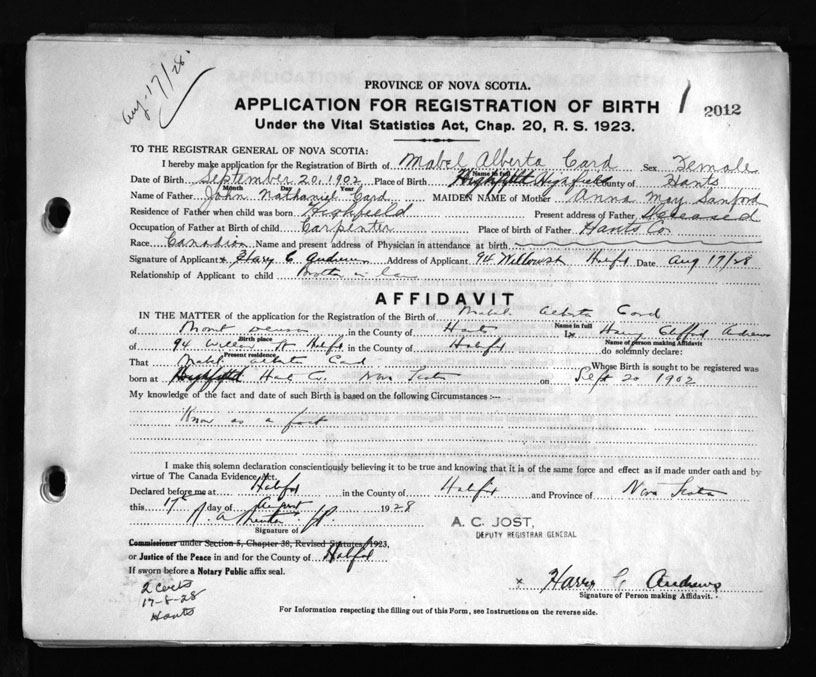 Aug. 17/28.
PROVINCE OF NOVA SCOTIA.
APPLICATION FOR REGISTRATION OF BIRTH
2012
Under the Vital Statistics Act, Chap. 20, R. S. 1923.
TO THE REGISTRAR GENERAL OF NOVA SCOTIA:
I hereby make application for the Registration of Birth of Mabel Alberta Card Sex Female
Name in full
Date of Birth September 20, 1902 Place of Birth Highfield County of Hants
Month Day Year
Name of Father John Nathaniel Card MAIDEN NAME of Mother Anna May Sanford
Residence of Father when child was born Highfield Present address of Father Deceased
Occupation of Father at Birth of Child Carpenter Place of birth of Father Hants Co.
Race Canadian Name and present address of Physician in attendance at birth
Signature of Applicant x Harry C Andrews Address of Applicant 94 Willow St Halfx Date Aug 17/28
Relationship of Applicant to child Brother in law
AFFIDAVIT
IN THE MATTER of the application for the Registration of the Birth of Mabel Alberta Card
Name in full
of Mont Denson in the County of Hants I, Harry Clifford Andrews
Birth place Name of person making Affidavit
of 94 Willow St Halfx in the County of Halifax do solemnly declare:
Present residence
That Mabel Alberta Card Whose Birth is sought to be registered was
born at Highfield Nova Scotia on Sept 20 1902
My knowledge of the fact and date of such Birth is based on the following Circumstances :—
Know as a fact
I make this solemn declaration conscientiously believing it to be true and knowing that it is of the same force and effect as if made under oath and by
virtue of The Canada Evidence Act.
Declared before me at Halifax in the County of Halifax and Province of Nova Scotia
this 17th day of August 1928
Signature of
A. C. JOST,
DEPUTY REGISTRAR GENERAL
Commissioner under Section 5, Chapter 38, Revised Statutes, 1923,
or Justice of the Peace in and for the County of Halifax
If sworn before a Notary Public affix seal.
x Harry C Andrews
Signature of Person making Affidavit.
2 certs
17-8-28
Hants
For Information respecting the filling out of this Form, see Instructions on the reverse side.